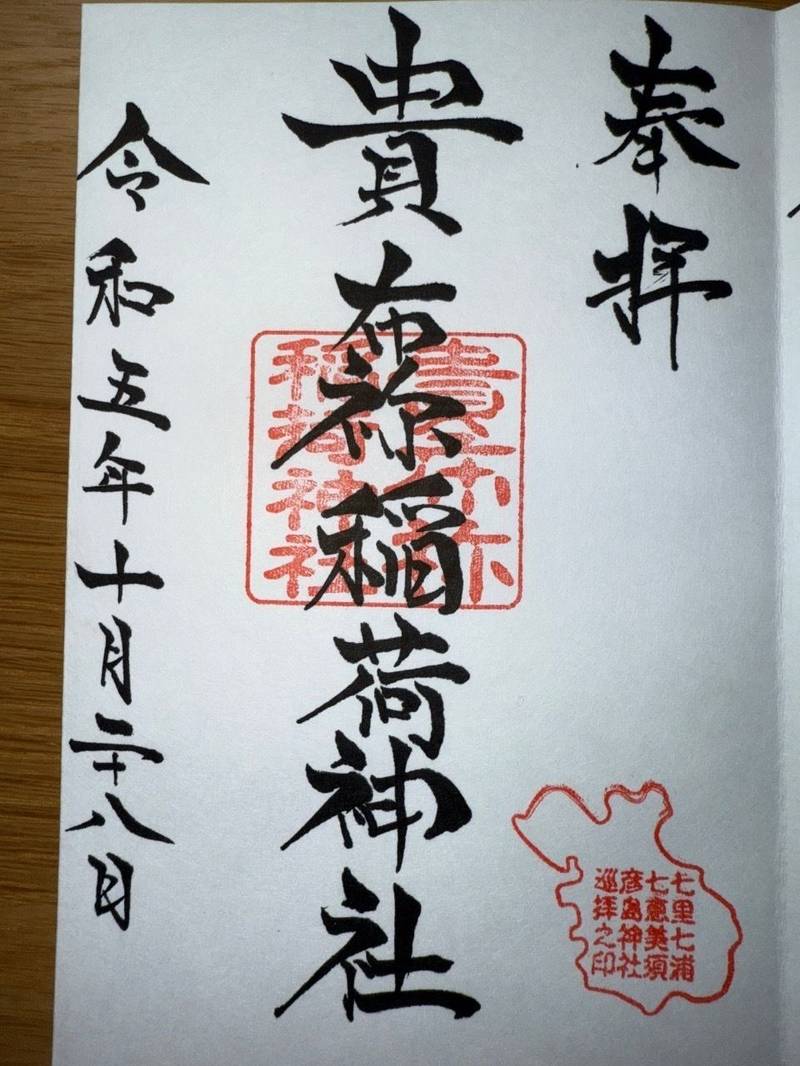 奉拝
貴布祢稲荷神社
貴布祢
稲荷神社
令和五年十月二十八日
七里七浦
七恵美須
彦島神社
巡拝之印